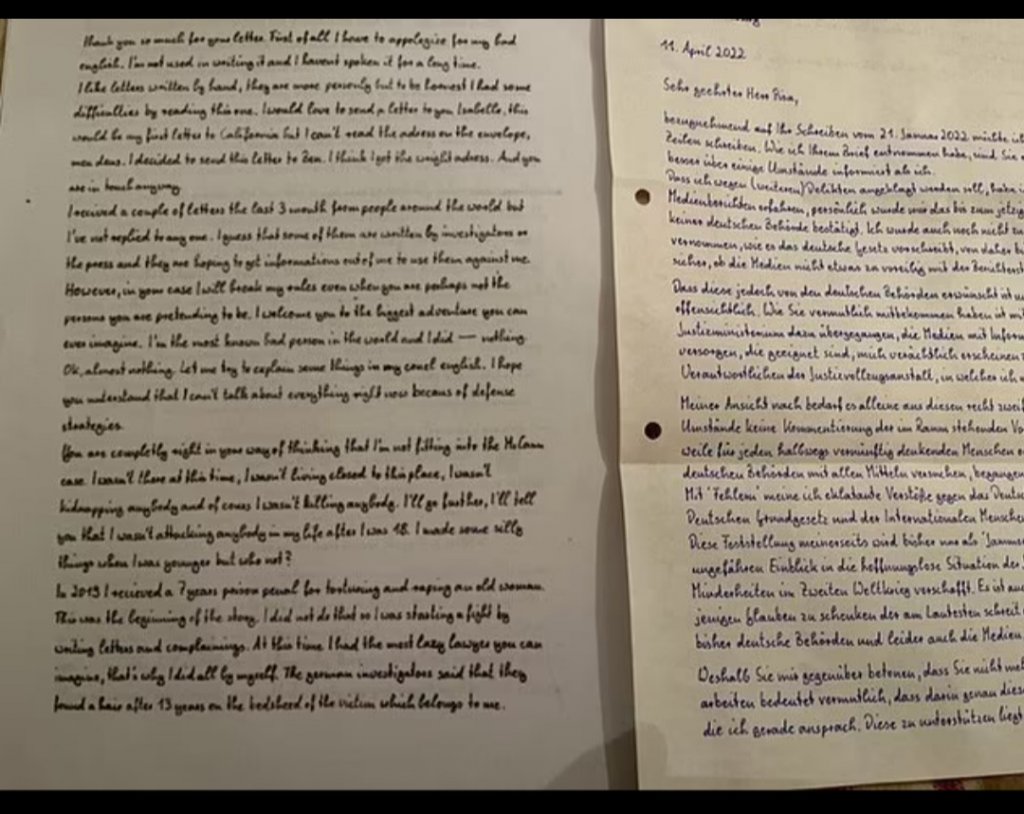 thank you so much for your letter. First of all I have to appologize for my bad
english. I'm not used in writing it and I havent spoken it for a long time.
I like letters written by hand, they are more personly but to be honest I had some
difficulties by reading this one. I would love to send a letter to you Isabelle, this
would be my first letter to California but I can't read the adress on the envelope,
mon deus. I decided to send this letter to Ben. I think I got the wright adress. And you
are in touch anyway.
I received a couple of letters the last 3 mouth form people around the world but
I've not replied to any one. I guess that some of them are written by investigators or
the press and they are hoping to get informations out of me to use them against me.
However, in your case I will break my rules even when you are perhaps not the
persons you are pretending to be. I welcome you to the biggest adventure you can
ever imagine. I'm the most known bad person in the world and I did — nothing.
Ok, almost nothing. Let me try to explain some things in my cruel english. I hope
you understand that I can't talk about everything right now becaus of defense
strategies.
You are completly right in your way of thinking that I'm not fitting into the McCann
case. I wasn't there at this time, I wasn't living closed to this place, I wasn't
kidnapping anybody and of cours I wasn't killing anybody. I'll go further, I'll tell
you that I wasn't attacking anybody in my life after I was 18. I made some silly
things when I was younger but who not?
In 2019 I recieved a 7 years prison penal for torturing and raping an old woman.
This was the beginning of the story. I did not do that so I was starting a fight by
writing letters and complainings. At this time I had the most lazy lawyer you can
imagine, that's why I did all by myself. The german investigators said that they
found a hair after 13 years on the bedsheed of the victim which belongs to me.
11. April 2022
Sehr geehrter Herr
bezugnehmend auf Ihr Schreiben vom 21. Januar 2022 möchte ich
Zeilen schreiben. Wie ich Ihrem Brief entnommen habe, sind Sie
besser über einige Umstände informiert als ich.
Dass ich wegen (weiteren) Delikten angeklagt werden soll, habe
Medienberichten erfahren, persönlich wurde mir das bis zum jetzig
keiner deutschen Behörde bestätigt. Ich wurde auch noch nicht
vernommen, wie es das deutsche Gesetz vorschreibt, von daher
sicher, ob die Medien nicht etwas zu voreilig mit der Berichterst
Dass diese jedoch von den deutschen Behörden erwünscht ist
offensichtlich. Wie Sie vermutlich mitbekommen haben ist
Justizministerium dazu übergegangen, die Medien mit Inform
versorgen, die geeignet sind, mich verächtlich erscheinen
Verantwortlichen der Justizvollzugsanstalt, in welcher ich
Meiner Ansicht nach bedarf es alleine aus diesen recht zweif
Umstände keine Kommentierung der im Raum stehenden Vo
weile für jeden halbwegs vernünftig denkenden Menschen
deutschen Behörden mit allen Mitteln versuchen, begangen
Mit "Fehlern" meine ich eklatante Verstöße gegen das Deutsc
Deutschen Grundgesetz und der Internationalen Mensche
Diese Feststellung meinerseits wird bisher nur als "Jamme
ungefähren Einblick in die hoffnungslose Situation der
Minderheiten im Zweiten Weltkrieg verschafft. Es ist
jenigen Glauben zu schenken der am Lautesten schreit
bisher deutsche Behörden und leider auch die Medien
Weshalb Sie mir gegenüber betonen, dass Sie nicht
arbeiten bedeutet vermutlich, dass darin genau diese
die ich gerade ansprach. Diese zu unterstützen liegt